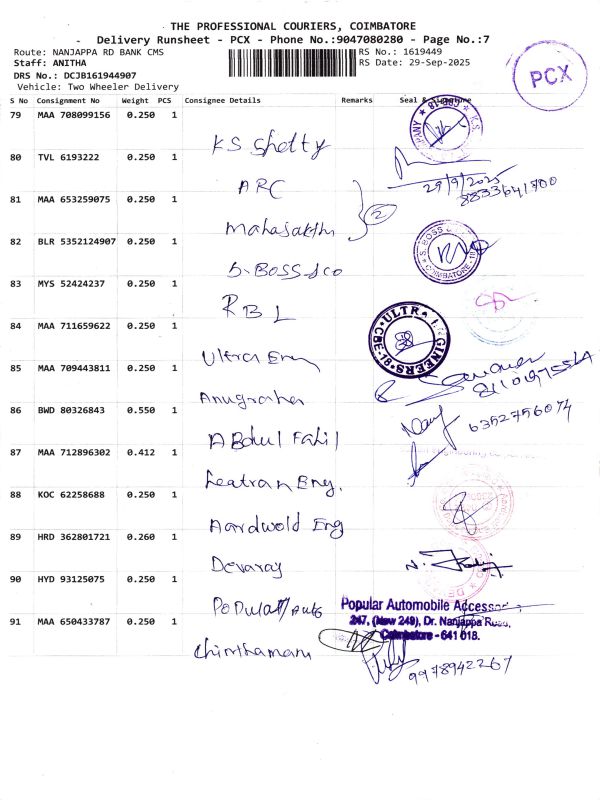 THE PROFESSIONAL COURIERS, COIMBATORE
- Delivery Runsheet - PCX - Phone No.:9047080280 - Page No.:7
Route: NANJAPPA RD BANK CMS RS No.: 1619449
Staff: ANITHA RS Date: 29-Sep-2025
DRS No.: DCJB161944907
Vehicle: Two Wheeler Delivery
PCX
S No Consignment No Weight PCS Consignee Details Remarks Seal & Signature
79 MAA 708099156 0.250 1
KS Shetty
80 TVL 6193222 0.250 1
ARC
29/9/2025
81 MAA 653259075 0.250 1
Mahasakthi
2
82 BLR 5352124907 0.250 1
S. BOSS &co
S. BOSS
COIMBATORE-18
83 MYS 52424237 0.250 1
RBL
84 MAA 711659622 0.250 1
Ultra Eng
ULTRA ENGINEERS CBE-18
85 MAA 709443811 0.250 1
Anugraha
86 BWD 80326843 0.550 1
Abdul Fazil
6352756074
87 MAA 712896302 0.412 1
Leatran Eng.
88 KOC 62258688 0.250 1
Aardwold Eng
89 HRD 362801721 0.260 1
Devaraj
90 HYD 93125075 0.250 1
Popular/Auto
Popular Automobile Accessor
247, (New 249), Dr. Nanjappa Road,
Coimbatore - 641 018.
91 MAA 650433787 0.250 1
Chinthamani
9978942267